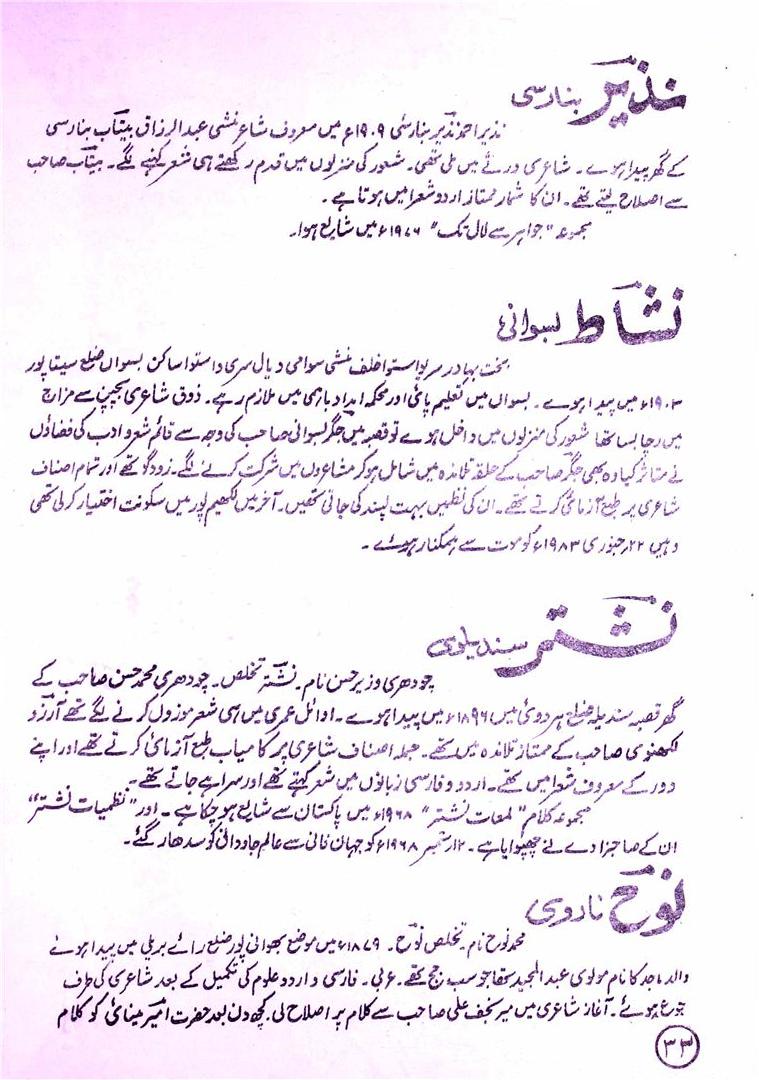 نذیر بنارسی
نذیر احمد نذیر بنارسی ۱۹۰۹ء میں معروف شاعر منشی عبدالرزاق بیتاب بنارسی
کے گھر پیدا ہوے۔ شاعری ورثے میں ملی تھی۔ شعور کی منزلوں میں قدم رکھتے ہی شعر کہنے لگے۔ بیتاب صاحب
سے اصلاح لیتے تھے۔ ان کا شمار ممتاز اردو شعرا میں ہوتا ہے۔
مجموعہ "جواہر سے لال تک" ۱۹۷۶ء میں شایع ہوا۔
نشاط بسوانی
بخت بہادر سریواستوا خلف منشی سوامی دیال سری واستوا ساکن بسواں ضلع سیتاپور
۱۹۰۳ء میں پیدا ہوے۔ بسواں میں تعلیم پائی اور محکمہ امداد باہمی میں ملازم رہے۔ ذوق شاعری بچپن سے مزاج
میں رچا بسا تھا شعور کی منزلوں میں داخل ہوے تو قصبہ میں جگر بسوانی صاحب کی وجہ سے قائم شعر و ادب کی فضاؤں
نے متاثر کیا وہ بھی جگر صاحب کے حلقہ تلامذہ میں شامل ہوکر مشاعروں میں شرکت کرنے لگے۔ زود گو تھے اور تمام اصناف
شاعری پر طبع آزمائی کرتے تھے۔ ان کی نظمیں بہت پسند کی جاتی تھیں۔ آخر میں لکھیم پور میں سکونت اختیار کر لی تھی
وہیں ۲۲؍ جنوری ۱۹۸۳ء کو موت سے ہمکنار ہوئے۔
نشتر سندیلوی
چودھری وزیر حسن نام۔ نشتر تخلص۔ چودھری محمد حسن صاحب کے
گھر قصبہ سندیلہ ضلع ہردوئی میں ۱۸۹۶ء میں پیدا ہوے۔ اوائل عمری میں ہی شعر موزوں کرنے لگے تھے آرزو
لکھنوی صاحب کے ممتاز تلامذہ میں تھے۔ جملہ اصناف شاعری پر کامیاب طبع آزمائی کرتے تھے اور اپنے
دور کے معروف شعرا میں تھے۔ اردو و فارسی زبانوں میں شعر کہتے تھے اور سراہے جاتے تھے۔
مجموعہ کلام "لمعات نشتر" ۱۹۶۸ء میں پاکستان سے شایع ہو چکا ہے۔ اور "نظمیات نشتر"
ان کے صاحبزادے نے چھپوایا ہے۔ ستمبر ۱۹۶۸ء کو جہان فانی سے عالم جاودانی کو سدھار گئے۔
نوح ناروی
محمد نوح نام۔ تخلص نوح۔ ۱۸۷۹ء میں موضع بھوانی پور ضلع رائے بریلی میں پیدا ہوئے
والد ماجد کا نام مولوی عبدالمجید تھا جو سب جج تھے۔ عربی۔ فارسی و اردو علوم کی تکمیل کے بعد شاعری کی طرف
جوع ہوئے۔ آغاز شاعری میں میر نجف علی صاحب سے کلام پر اصلاح لی۔ کچھ دن بعد حضرت امیر مینائی کو کلام
۳۳